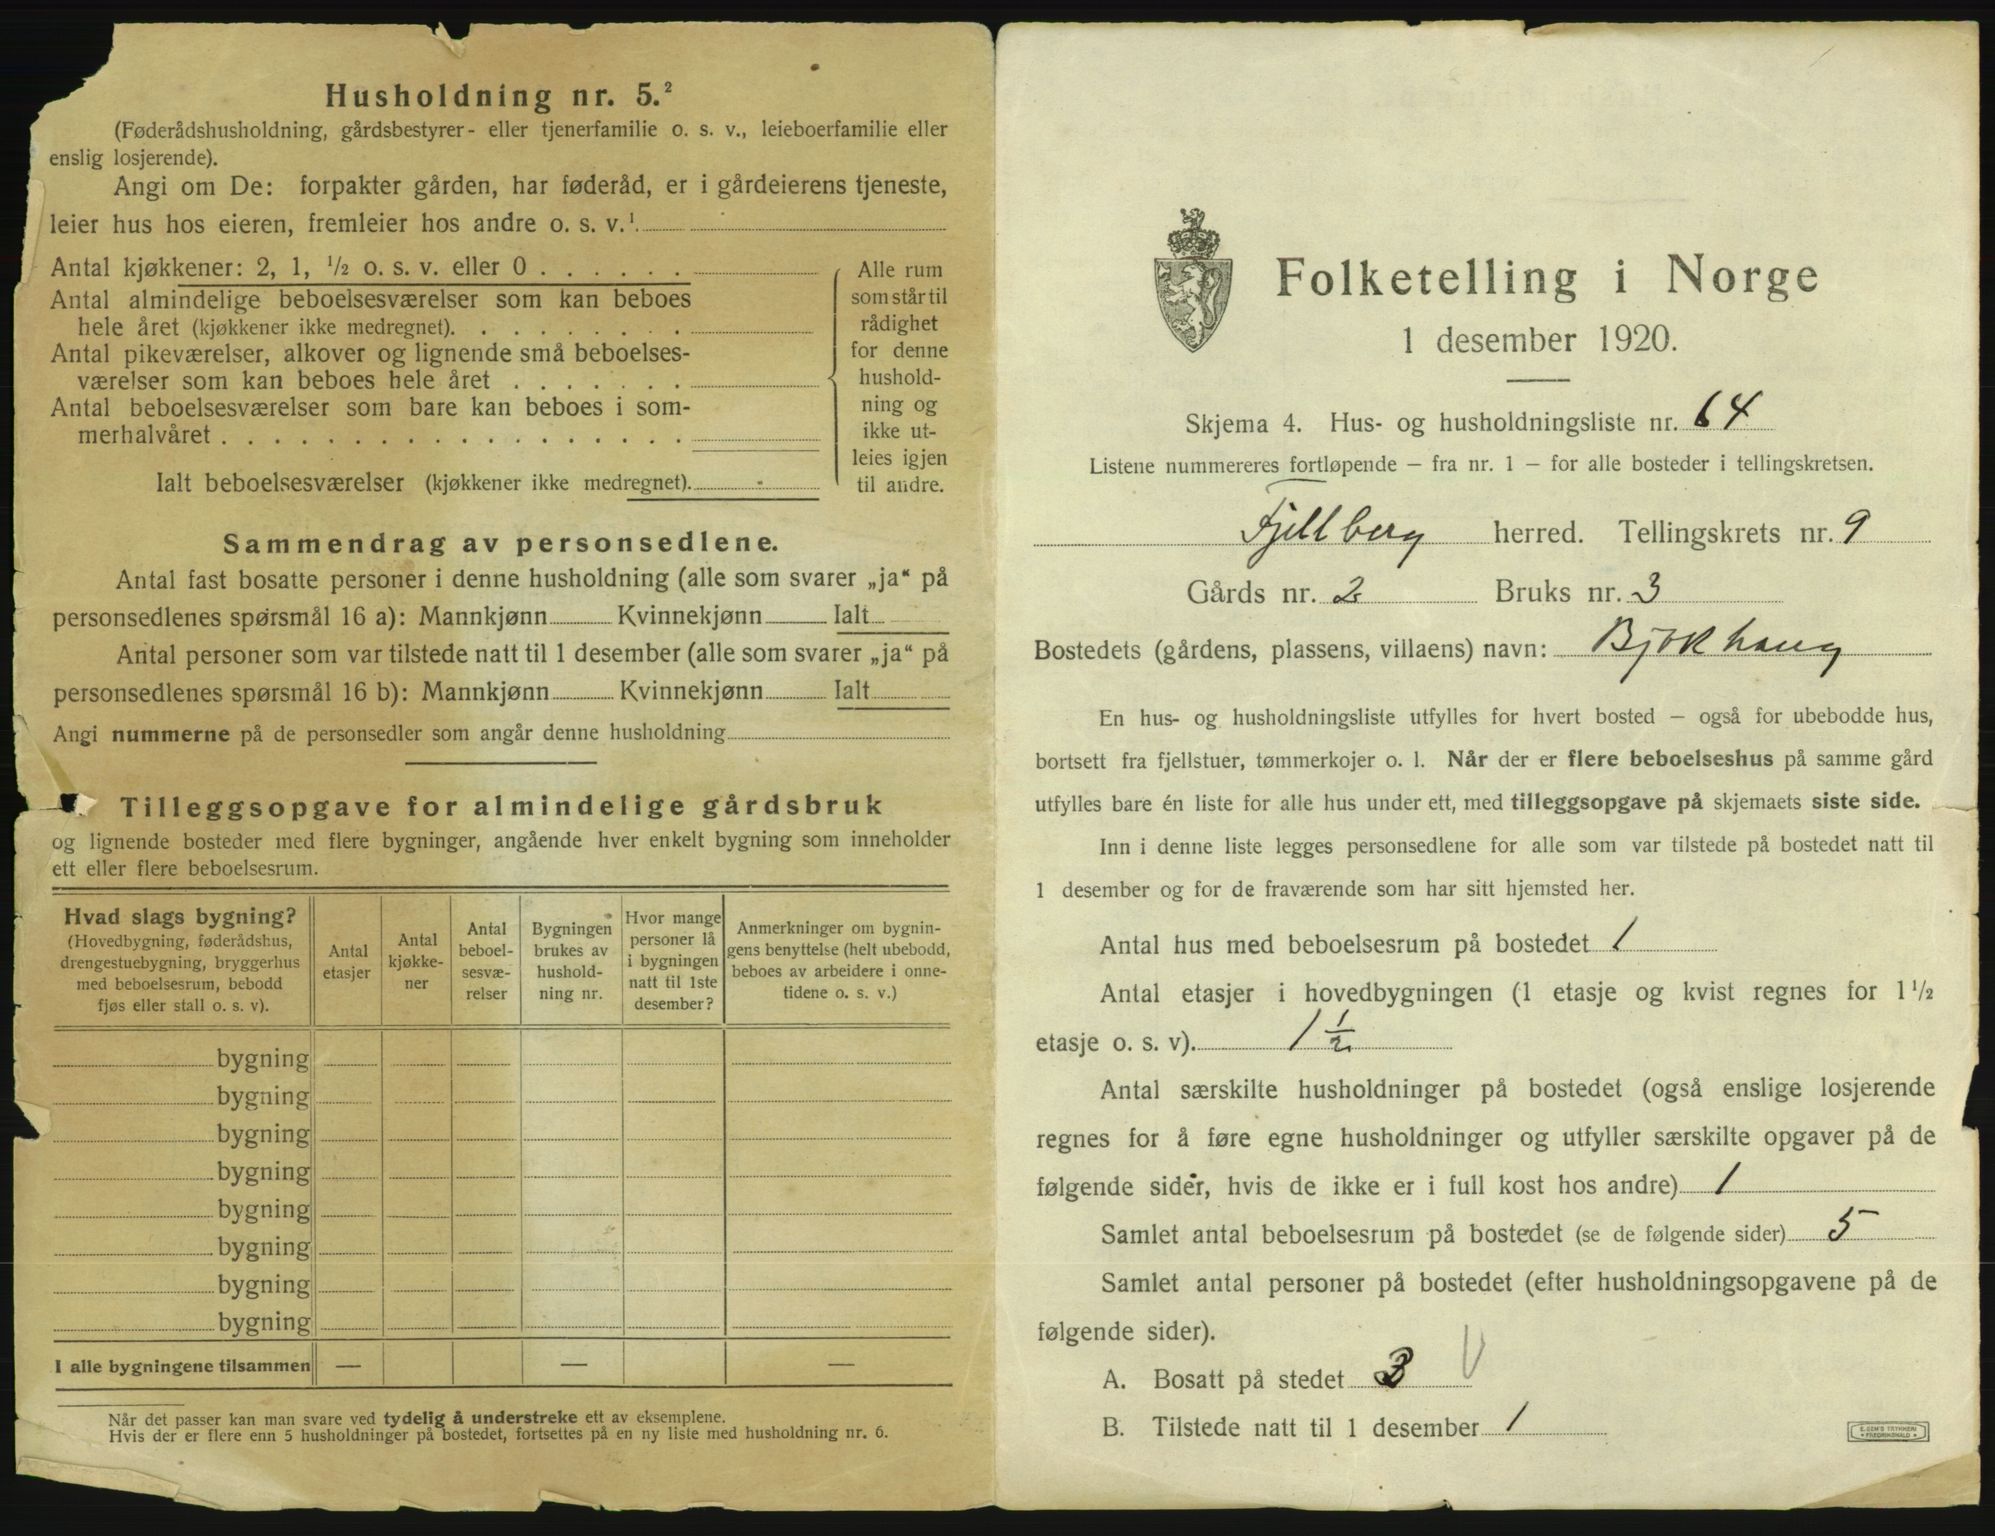 Husholdning nr. 5.²
(Føderådshusholdning, gårdsbestyrer- eller tjenerfamilie o. s. v., leieboerfamilie eller
enslig losjerende).
Angi om De: forpakter gården, har føderåd, er i gårdeierens tjeneste,
leier hus hos eieren, fremleier hos andre o. s. v.¹
Antal kjøkkener: 2, 1, ½ o. s. v. eller 0 . . . . . .
Antal almindelige beboelsesværelser som kan beboes
hele året (kjøkkener ikke medregnet). . . . . . . . .
Antal pikeværelser, alkover og lignende små beboelses-
værelser som kan beboes hele året . . . . . . .
Antal beboelsesværelser som bare kan beboes i som-
merhalvåret . . . . . . . . . . . . . . . . . .
Ialt beboelsesværelser (kjøkkener ikke medregnet).
Alle rum
som står til
rådighet
for denne
hushold-
ning og
ikke ut-
leies igjen
til andre.
Sammendrag av personsedlene.
Antal fast bosatte personer i denne husholdning (alle som svarer „ja“ på
personsedlenes spørsmål 16 a): Mannkjønn Kvinnekjønn Ialt
Antal personer som var tilstede natt til 1 desember (alle som svarer „ja“ på
personsedlenes spørsmål 16 b): Mannkjønn Kvinnekjønn Ialt
Angi nummerne på de personsedler som angår denne husholdning
Tilleggsopgave for almindelige gårdsbruk
og lignende bosteder med flere bygninger, angående hver enkelt bygning som inneholder
ett eller flere beboelsesrum.
Hvad slags bygning?
(Hovedbygning, føderådshus,
drengestuebygning, bryggerhus
med beboelsesrum, bebodd
fjøs eller stall o. s. v).
Antal
etasjer
Antal
kjøkke-
ner
Antal
beboel-
sesvæ-
relser
Bygningen
brukes av
hushold-
ning nr.
Hvor mange
personer lå
i bygningen
natt til 1ste
desember?
Anmerkninger om bygnin-
gens benyttelse (helt ubebodd,
beboes av arbeidere i onne-
tidene o. s. v.)
bygning
bygning
bygning
bygning
bygning
bygning
bygning
bygning
I alle bygningene tilsammen — — —
Når det passer kan man svare ved tydelig å understreke ett av eksemplene.
Hvis der er flere enn 5 husholdninger på bostedet, fortsettes på en ny liste med husholdning nr. 6.
Folketelling i Norge
1 desember 1920.
Skjema 4. Hus- og husholdningsliste nr. 64
Listene nummereres fortløpende – fra nr. 1 – for alle bosteder i tellingskretsen.
Fjellberg herred. Tellingskrets nr. 9
Gårds nr. 2 Bruks nr. 3
Bostedets (gårdens, plassens, villaens) navn: Bjøkhaug
En hus- og husholdningsliste utfylles for hvert bosted – også for ubebodde hus,
bortsett fra fjellstuer, tømmerkojer o. l. Når der er flere beboelseshus på samme gård
utfylles bare én liste for alle hus under ett, med tilleggsopgave på skjemaets siste side.
Inn i denne liste legges personsedlene for alle som var tilstede på bostedet natt til
1 desember og for de fraværende som har sitt hjemsted her.
Antal hus med beboelsesrum på bostedet 1
Antal etasjer i hovedbygningen (1 etasje og kvist regnes for 1½
etasje o. s. v). 1½
Antal særskilte husholdninger på bostedet (også enslige losjerende
regnes for å føre egne husholdninger og utfyller særskilte opgaver på de
følgende sider, hvis de ikke er i full kost hos andre) 1
Samlet antal beboelsesrum på bostedet (se de følgende sider) 5
Samlet antal personer på bostedet (efter husholdningsopgavene på de
følgende sider).
A. Bosatt på stedet 3
B. Tilstede natt til 1 desember 1
E. SEM'S TRYKKERI
FREDRIKSHALD